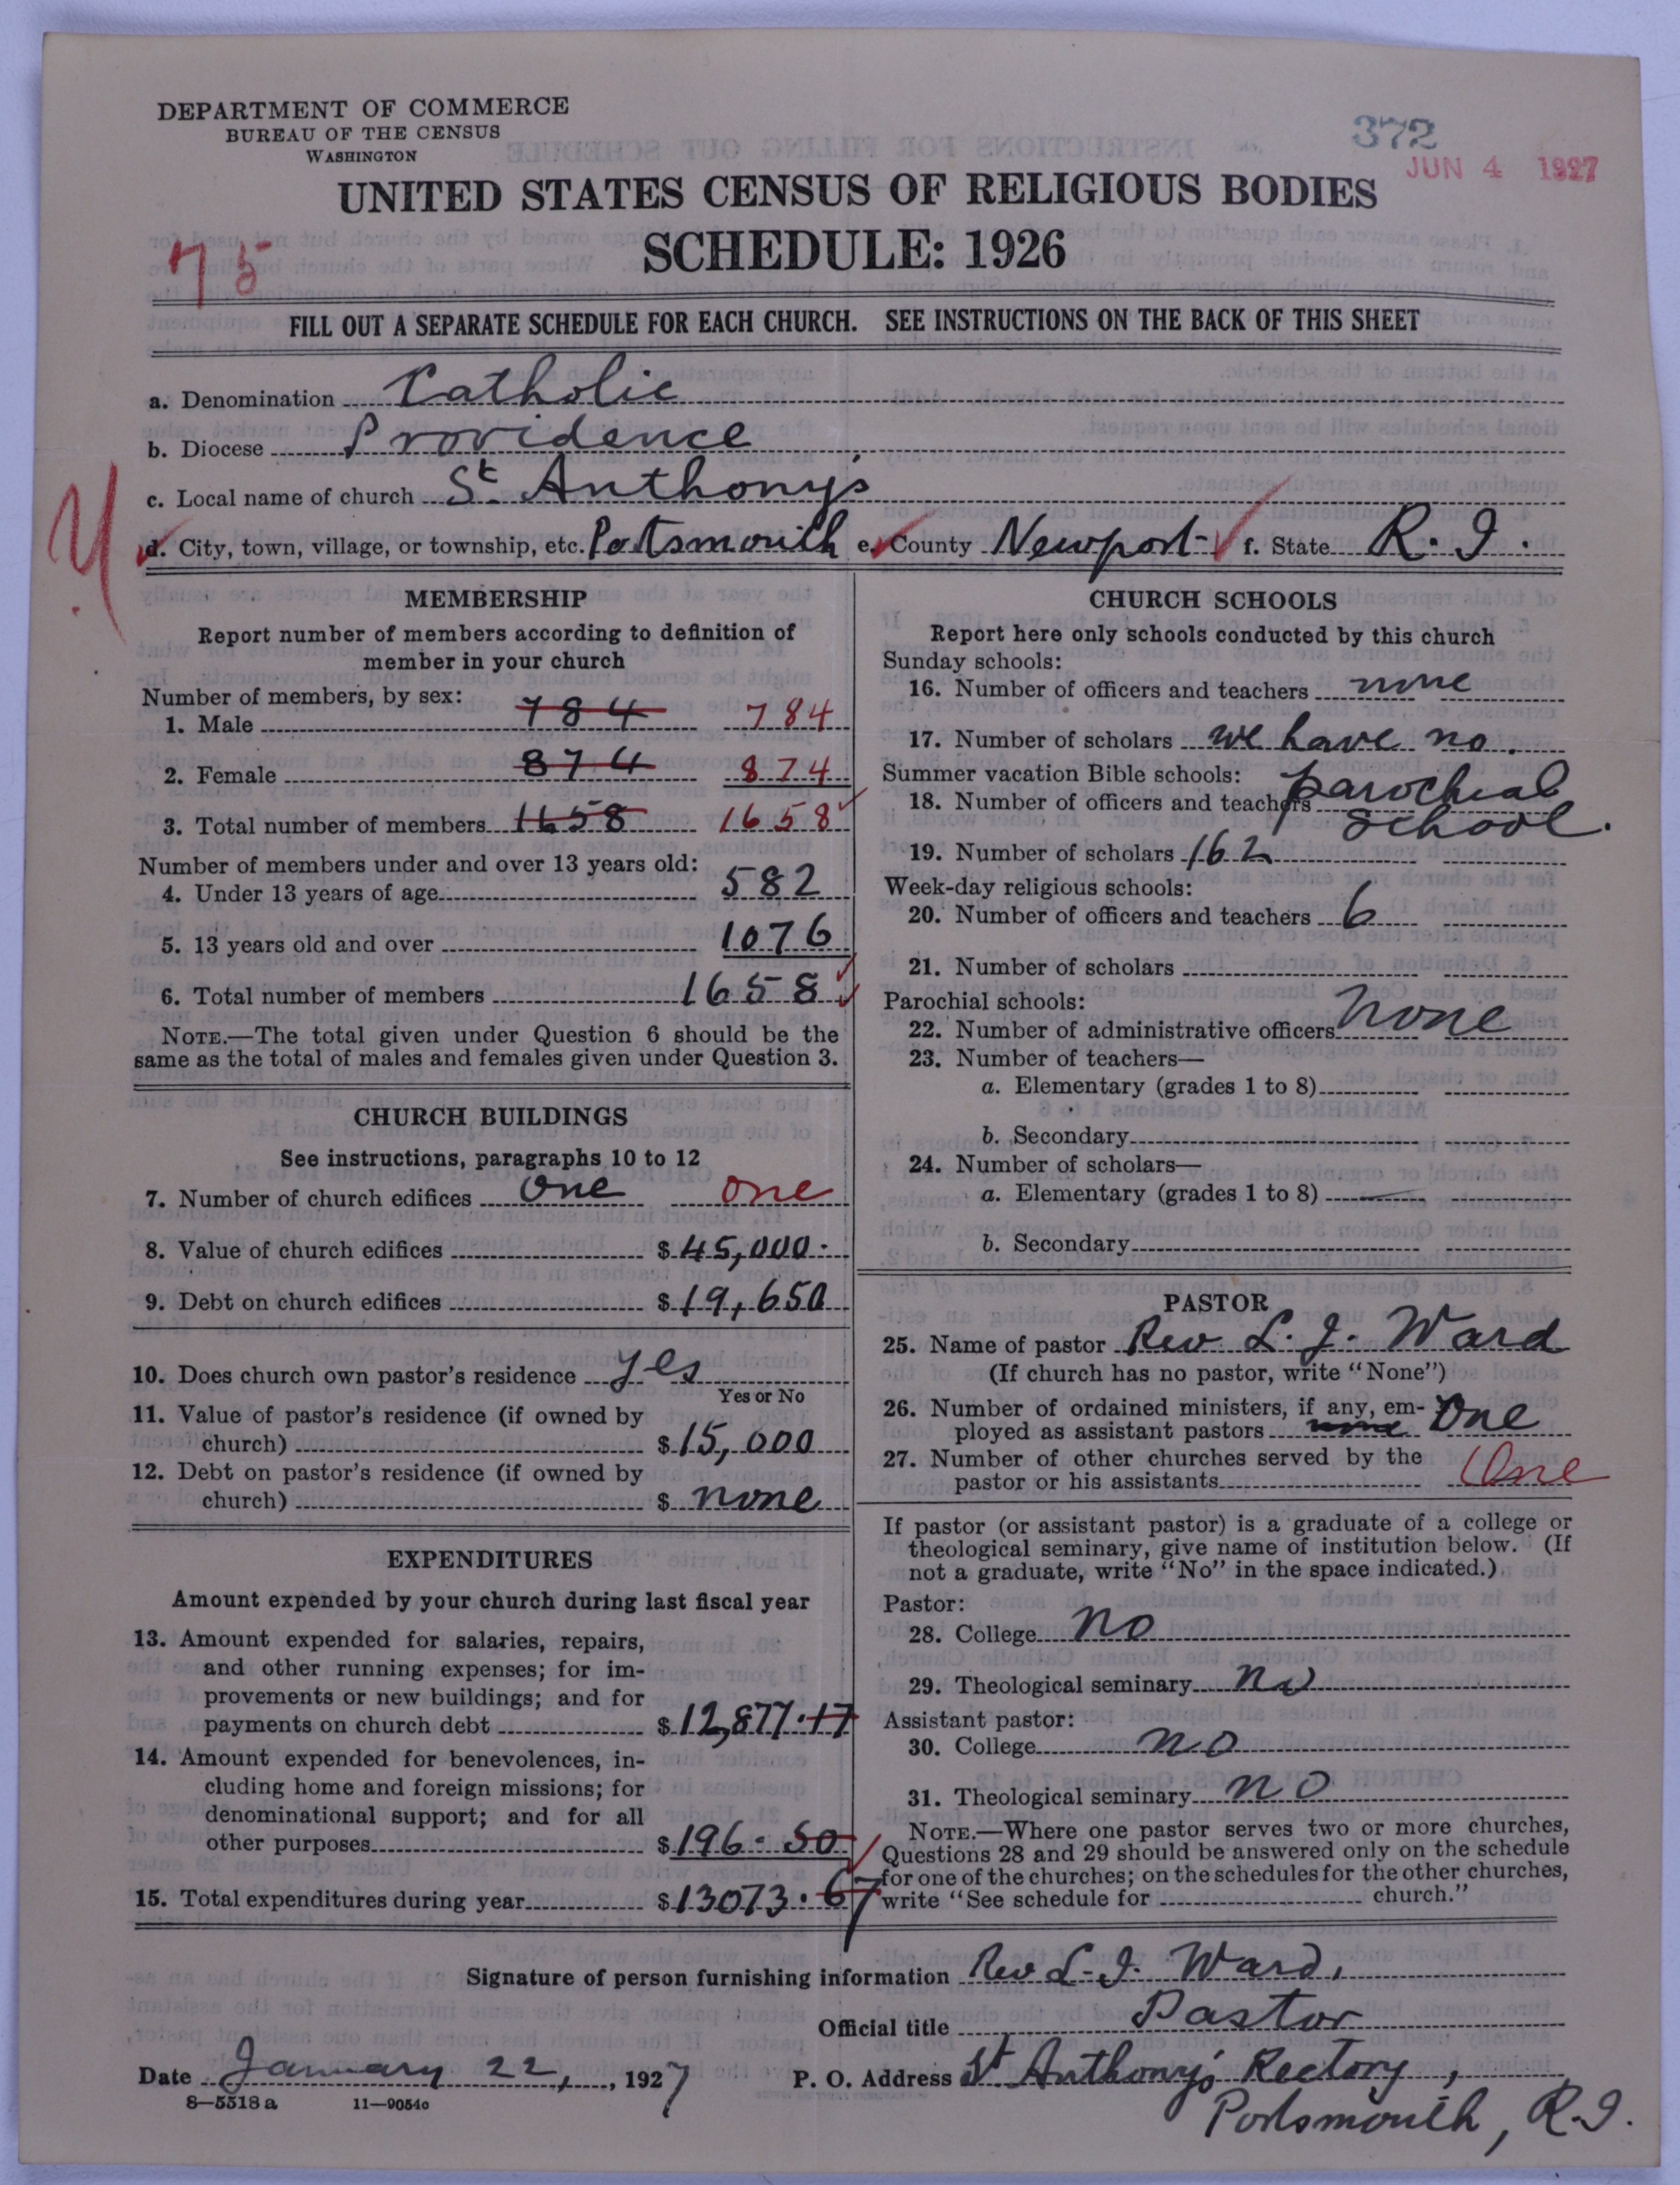 DEPARTMENT OF COMMERCE
BUREAU OF THE CENSUS
WASHINGTON
372
JUN 4 1927
UNITED STATES CENSUS OF RELIGIOUS BODIES
SCHEDULE: 1926
75
FILL OUT A SEPARATE SCHEDULE FOR EACH CHURCH. SEE INSTRUCTIONS ON THE BACK OF THIS SHEET
a. Denomination Catholic
b. Diocese Providence
c. Local name of church St. Anthony's
d. City, town, village, or township, etc. Portsmouth e. County Newport f. State R.I.
MEMBERSHIP
Report number of members according to definition of
member in your church
Number of members, by sex:
1. Male 784 784
2. Female 874 874
3. Total number of members 1658 1658
Number of members under and over 13 years old:
4. Under 13 years of age 582
5. 13 years old and over 1076
6. Total number of members 1658
NOTE.—The total given under Question 6 should be the
same as the total of males and females given under Question 3.
CHURCH BUILDINGS
See instructions, paragraphs 10 to 12
7. Number of church edifices one one
8. Value of church edifices $ 45,000.
9. Debt on church edifices $ 19,650
10. Does church own pastor's residence yes
Yes or No
11. Value of pastor's residence (if owned by
church) $ 15,000
12. Debt on pastor's residence (if owned by
church) $ none
EXPENDITURES
Amount expended by your church during last fiscal year
13. Amount expended for salaries, repairs,
and other running expenses; for im-
provements or new buildings; and for
payments on church debt $ 12,877.17
14. Amount expended for benevolences, in-
cluding home and foreign missions; for
denominational support; and for all
other purposes $ 196.50
15. Total expenditures during year $ 13073.67
CHURCH SCHOOLS
Report here only schools conducted by this church
Sunday schools:
16. Number of officers and teachers none
17. Number of scholars we have no.
Summer vacation Bible schools:
18. Number of officers and teachers parochial
school.
19. Number of scholars 162
Week-day religious schools:
20. Number of officers and teachers 6
21. Number of scholars
Parochial schools:
22. Number of administrative officers none
23. Number of teachers—
a. Elementary (grades 1 to 8)
b. Secondary
24. Number of scholars—
a. Elementary (grades 1 to 8)
b. Secondary
PASTOR
25. Name of pastor Rev. L. J. Ward
(If church has no pastor, write "None")
26. Number of ordained ministers, if any, em-
ployed as assistant pastors none One
27. Number of other churches served by the
pastor or his assistants One
If pastor (or assistant pastor) is a graduate of a college or
theological seminary, give name of institution below. (If
not a graduate, write "No" in the space indicated.)
Pastor:
28. College no
29. Theological seminary no
Assistant pastor:
30. College no
31. Theological seminary no
NOTE.—Where one pastor serves two or more churches,
Questions 28 and 29 should be answered only on the schedule
for one of the churches; on the schedules for the other churches,
write "See schedule for church."
Signature of person furnishing information Rev L. J. Ward,
Official title Pastor
Date January 22, 1927 P. O. Address St Anthony's Rectory,
Portsmouth, R.I.
8—5518 a 11—9054c